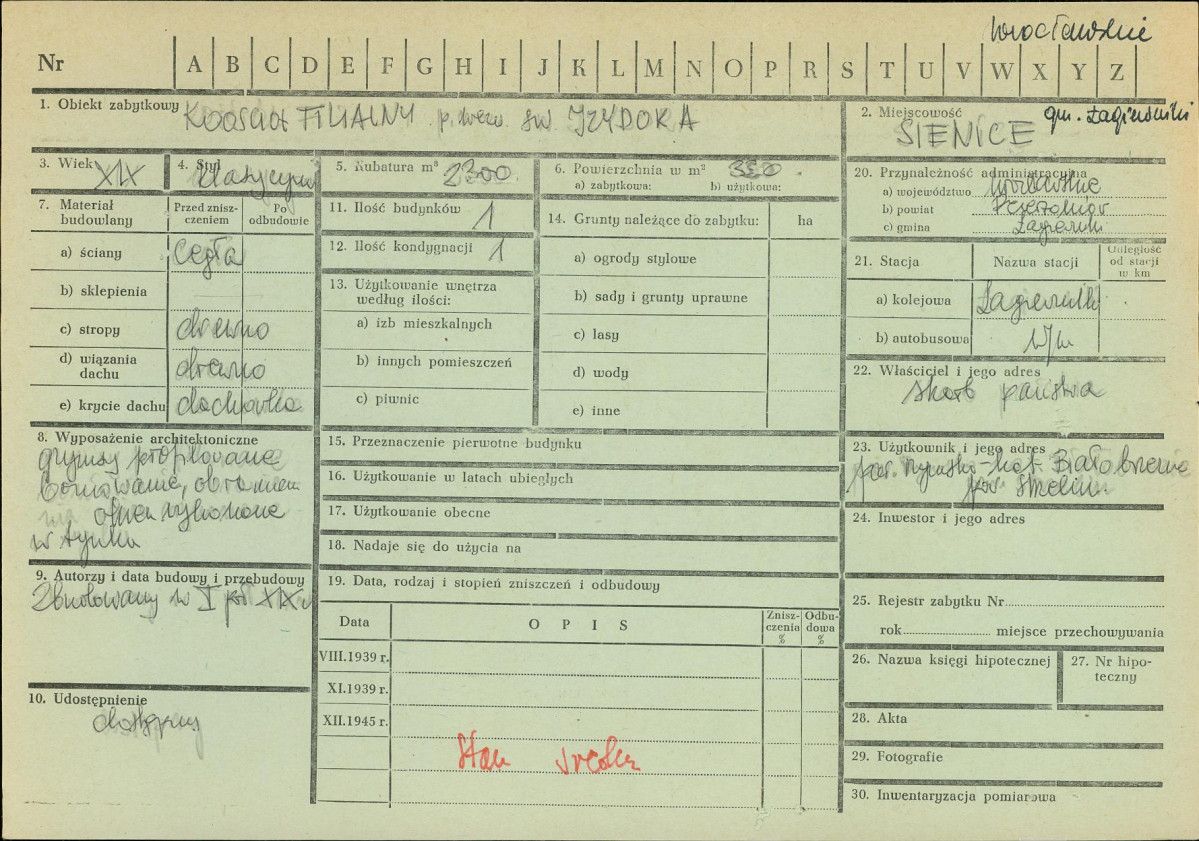 wrocławskie
Nr A B C D E F G H I J K L M N O P R S T U V W X Y Z
1. Obiekt zabytkowy KOŚCIÓŁ FILIALNY p. wezw. św IZYDORA
2. Miejscowość gm. Łagiewniki
SIENICE
3. Wiek XIX
4. Styl klasycyzm
5. Kubatura m³ 2300
6. Powierzchnia w m² 320
a) zabytkowa: b) użytkowa:
7. Materiał budowlany
Przed zniszczeniem
Po odbudowie
a) ściany cegła
b) sklepienia
c) stropy drewno
d) wiązania dachu drewno
e) krycie dachu dachówka
8. Wyposażenie architektoniczne
gzymsy profilowane
boniowanie, obramie
nia okien wykonane
w tynku
9. Autorzy i data budowy i przebudowy
Zbudowany w I poł XIX w
10. Udostępnienie
dostępny
11. Ilość budynków 1
12. Ilość kondygnacji 1
13. Użytkowanie wnętrza według ilości:
a) izb mieszkalnych
b) innych pomieszczeń
c) piwnic
14. Grunty należące do zabytku: ha
a) ogrody stylowe
b) sady i grunty uprawne
c) lasy
d) wody
e) inne
15. Przeznaczenie pierwotne budynku
16. Użytkowanie w latach ubiegłych
17. Użytkowanie obecne
18. Nadaje się do użycia na
19. Data, rodzaj i stopień zniszczeń i odbudowy
Data OPIS Zniszczenia % Odbudowa %
VIII.1939 r.
XI.1939 r.
XII.1945 r.
Stan średni
20. Przynależność administracyjna
a) województwo wrocławskie
b) powiat Dzierżoniów
c) gmina Łagiewniki
21. Stacja Nazwa stacji Odległość od stacji w km
a) kolejowa Łagiewniki
b) autobusowa j/w
22. Właściciel i jego adres
skarb państwa
23. Użytkownik i jego adres
par. rzymsko-kat. Białobrzezie
pow. Strzelin
24. Inwestor i jego adres
25. Rejestr zabytku Nr
rok miejsce przechowywania
26. Nazwa księgi hipotecznej
27. Nr hipoteczny
28. Akta
29. Fotografie
30. Inwentaryzacja pomiarowa